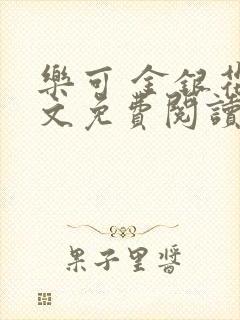 樂可 金銀花
文免費閱讀
果子里醬